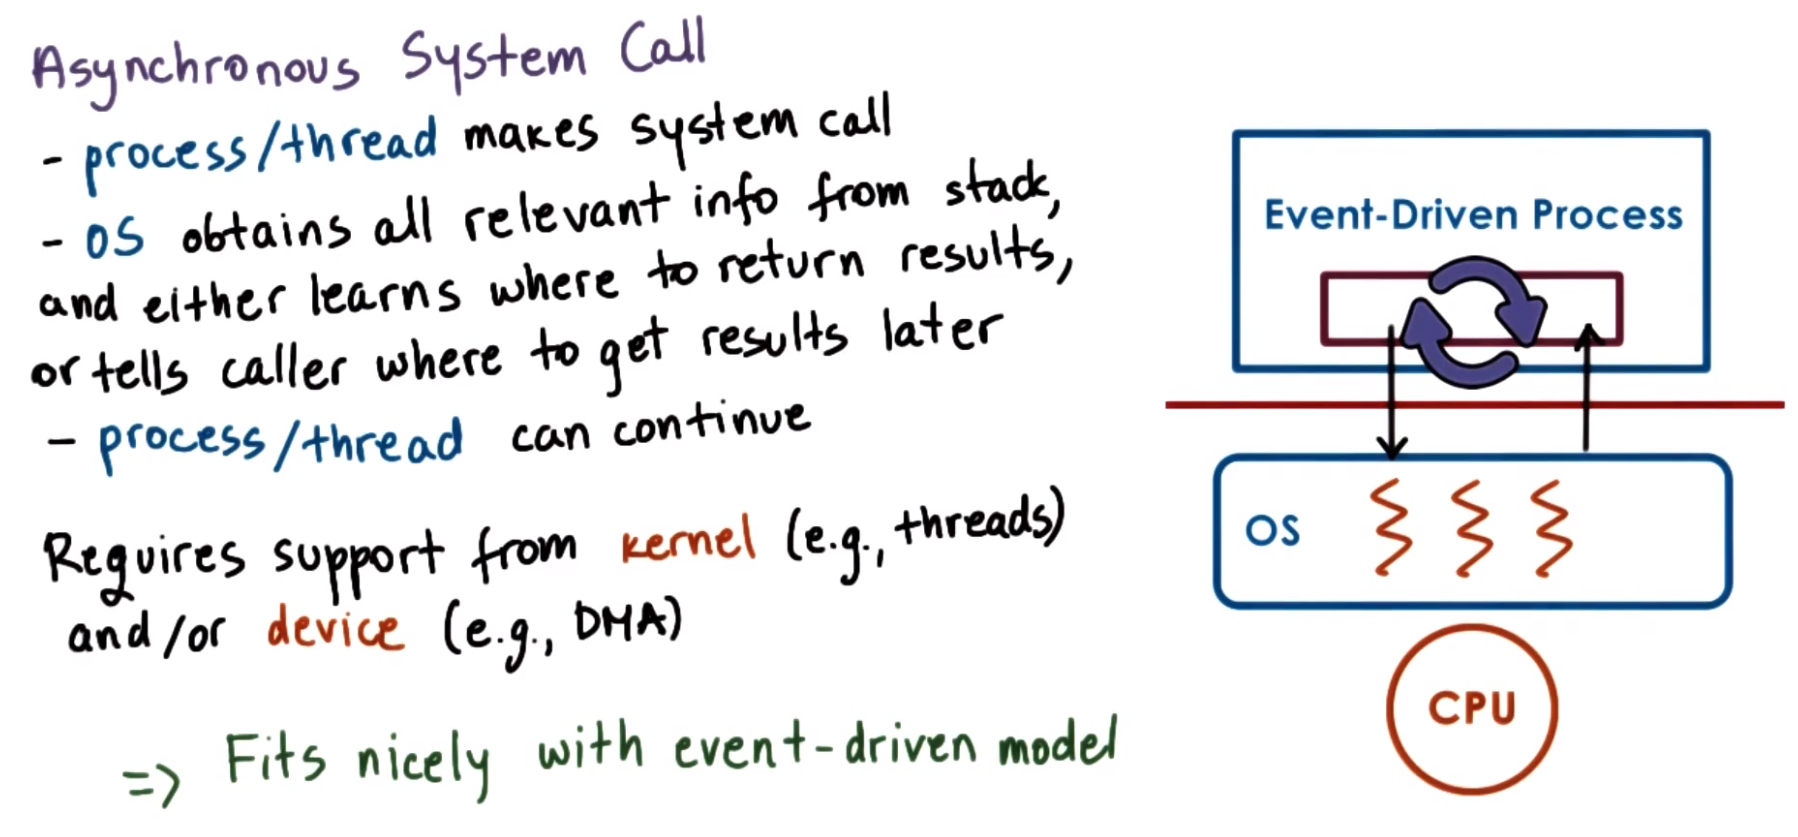 Asynchronous System Call
- process/thread makes system call
- OS obtains all relevant info from stack,
and either learns where to return results,
or tells caller where to get results later
- process/thread can continue
Requires support from kernel (e.g., threads)
and/or device (e.g., DMA)
=> Fits nicely with event-driven model
Event-Driven Process
OS
CPU